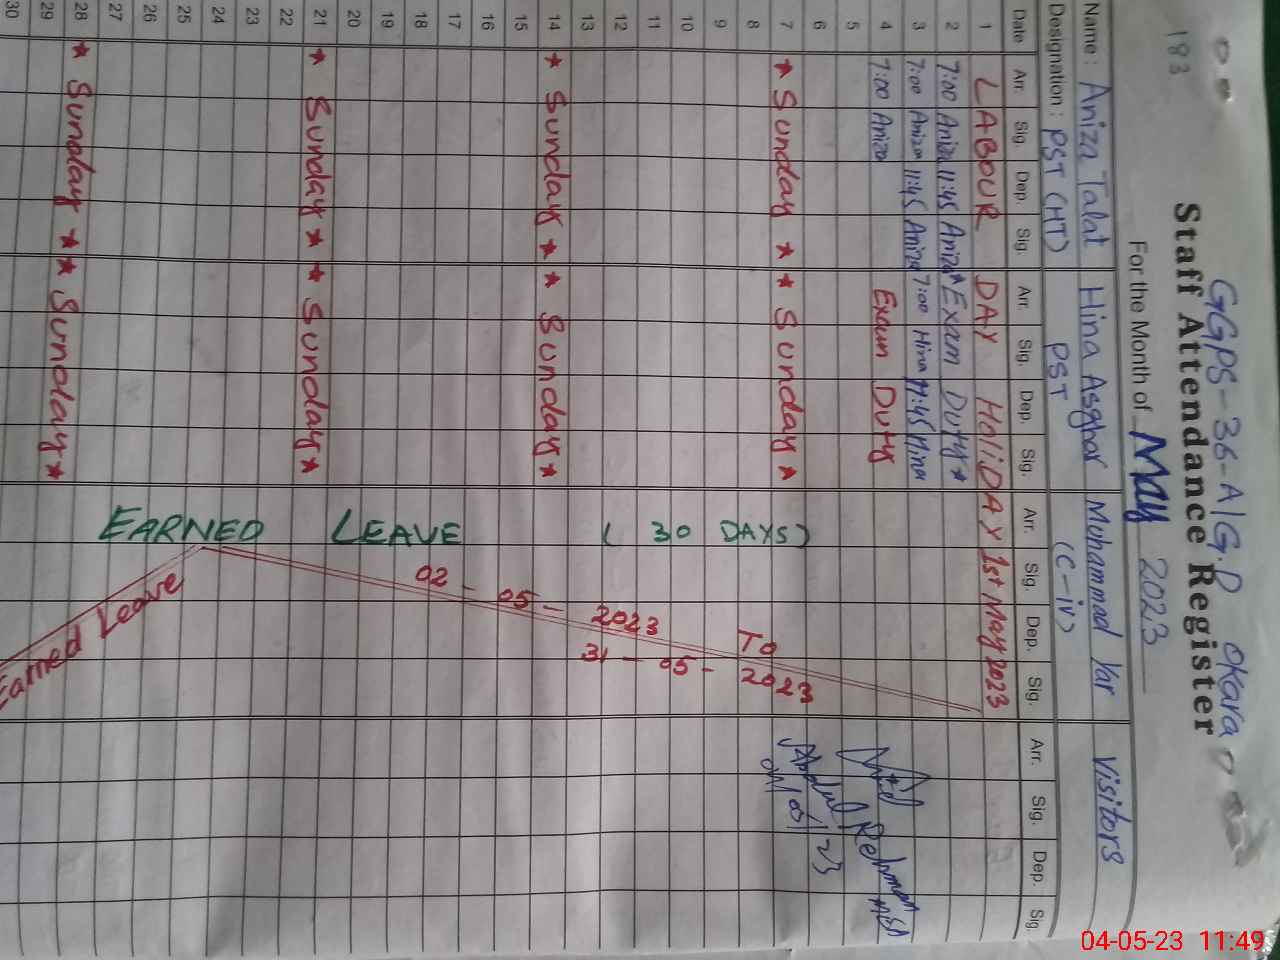 183
GGPS-36-A/G.D Okara
Staff Attendance Register
For the Month of May 2023
Name: Aniza Talat Hina Asghar Muhammad Yar Visitors
Designation: PST (HT) PST (C-iv)
Date Arr. Sig. Dep. Sig. Arr. Sig. Dep. Sig. Arr. Sig. Dep. Sig. Arr. Sig. Dep. Sig.
1 LABOUR DAY HoliDAY 1st May 2023
2 7:00 Aniza 11:45 Aniza *Exam Duty*
3 7:00 Aniza 11:45 Aniza 7:00 Hina 11:45 Hina
4 7:00 Aniza Exam Duty
5
6
7 * Sunday * * Sunday *
8
9
10
11
12
13
14 * Sunday * * Sunday *
15
16
17
18
19
20
21 * Sunday * * Sunday *
22
23
24
25
26
27
28 * Sunday * * Sunday *
29
30
EARNED LEAVE (30 DAYS)
02-05-2023 To
31-05-2023
Earned Leave
Abdul Rehman
04/05/23
04-05-23 11:49